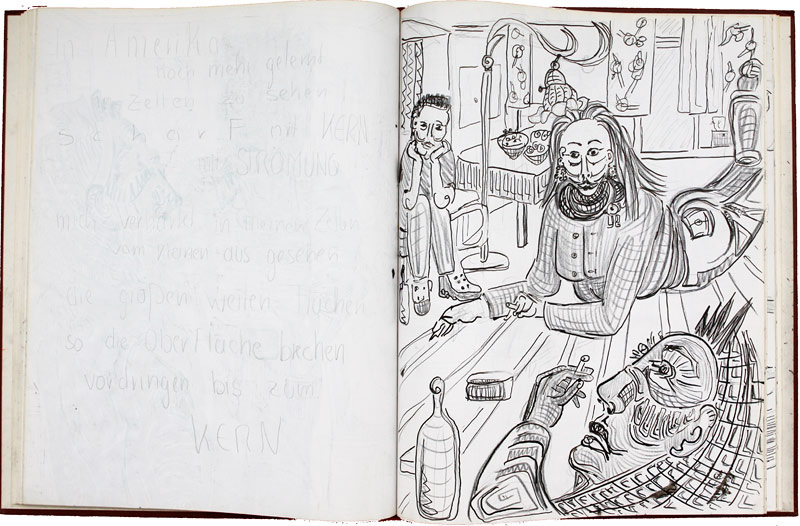 In Amerika
noch mehr gelernt
in Zeiten zu sehen
scharf mit KERN
mit STRÖMUNG
mich verstärkt in
vom kleinen aus gesehen
die großen weiten Flächen
so die Oberfläche brechen
vordringen bis zum
KERN